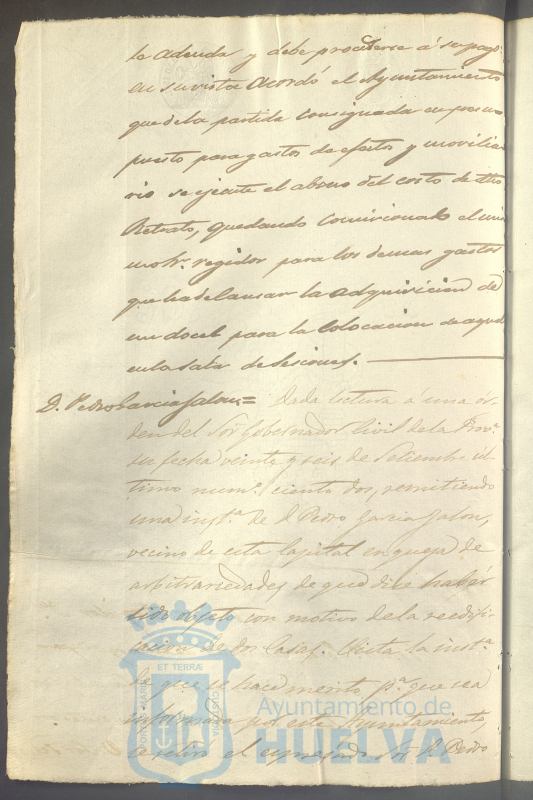 le adeuda y debe procederse á su pago
en su vista Acordó el Ayuntamiento
que de la partida consignada en presu
puesto para gastos de efectos y moviliа
rio se ejecute el abono del costo de dho
Retrato, quedando comicionado el mis
mo Sr. regidor para los demas gastos
que ha de causar la adquisicion de
un docel para la colocacion de aquel
en la Sala de Seciones.
D. Pedro Garcia Jalon = Dada lectura á una or
den del Sor Gobernador Civil de la Prova.
su fecha veinte y seis de Setiembre ul
timo num.º ciento dos, remitiendo
una insta. de D. Pedro Garcia Jalon,
vecino de esta Capital en queja de
arbitrariedades de que dice haber
sido objeto con motivo de la reedifi
cacion de dos Casas. Vista la insta.
de que se hace merito pa. que sea
informada por este Ayuntamiento
se retiró el espresado Sor. D. Pedro
ET TERRÆ
PORTUS MARIS
CUSTODIA
Ayuntamiento de
HUELVA